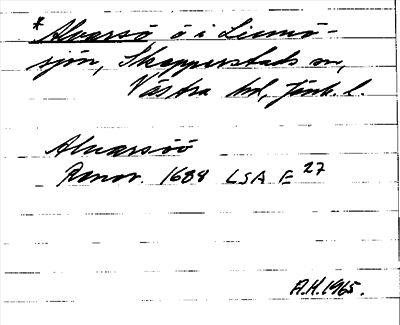 * Alvarsö ö i Linnö-
sjön, Skepperstads sn,
Västra hd, Jönk. l.
Alvarsöö
Renov. 1688 LSA E 27
A.H. 1965.